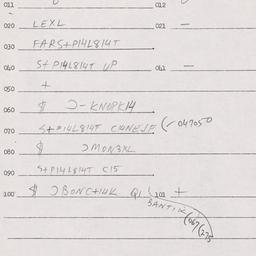 011 012
020 LEXL 021 —
030 FARS+P14L814T
040 S+P14L814T UP 041 —
050 +
060 $ Ɔ-KNOPK14
070 S+P14L814T (-047050
080 $ ƆMON3XL
090 S+P14L814T C15
100 $ ƆBONC+14K 101 +
BANTIK